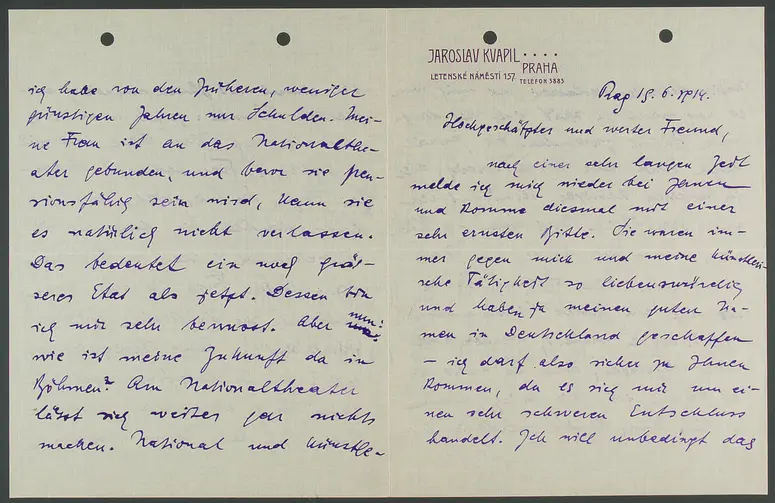 JAROSLAV KVAPIL ····
PRAHA
LETENSKÉ NÁMĚSTÍ 157. TELEFON 3883
Prag 15. 6. 1914.
Hochgeschätzter und werter Freund,
nach einer sehr langen Zeit
melde ich mich wieder bei Ihnen
und komme diesmal mit einer
sehr ernsten Bitte. Sie waren im-
mer gegen mich und meine künstleri-
sche Tätigkeit so liebenswürdig
und haben ja meinen guten Na-
men in Deutschland geschaffen
— ich darf also sicher zu Ihnen
kommen, da es sich mir um ei-
nen sehr schweren Entschluss
handelt. Ich will unbedingt das
ich habe von den früheren, weniger
günstigen Jahren nur Schulden. Mei-
ne Frau ist an das Nationalthe-
ater gebunden, und bevor sie pen-
sionsfähig sein wird, kann sie
es natürlich nicht verlassen.
Das bedeutet ein noch größ-
seres Etat als jetzt. Dessen bin
ich mir sehr bewusst. Aber nun:
wie ist meine Zukunft da in
Böhmen? Am Nationaltheater
lässt sich weiter gar nichts
machen. National und künstle-